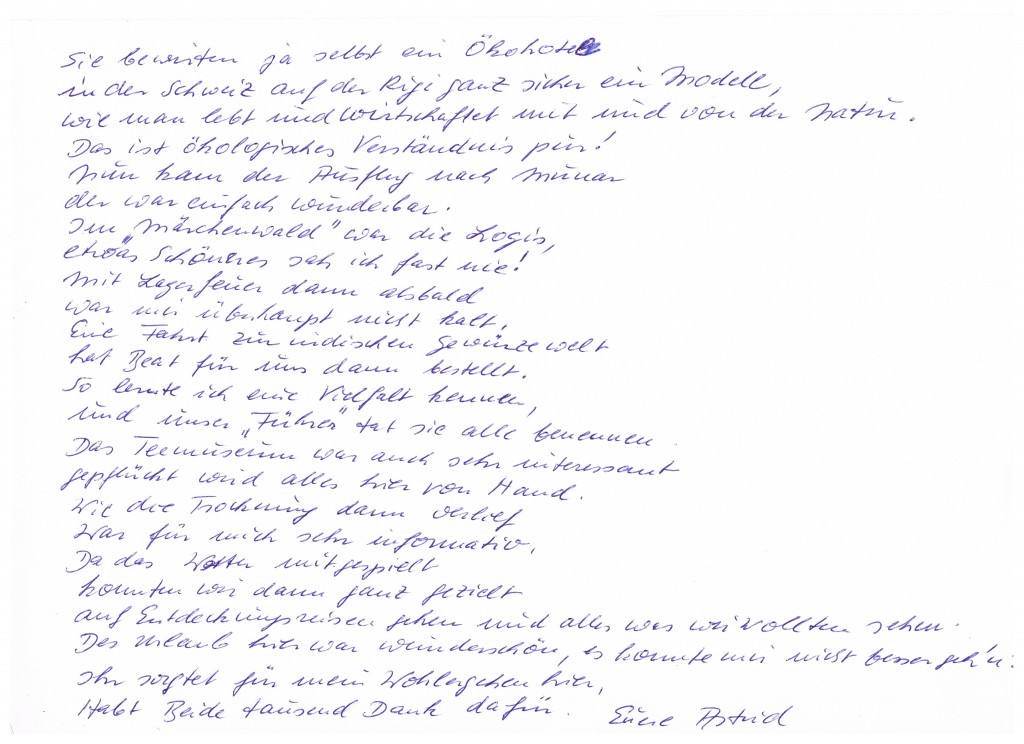 Sie bewirten ja selbst ein Ökohotel
in der Schweiz auf der Rigi ganz sicher ein Modell,
wie man lebt und wirtschaftet mit und von der Natur.
Das ist ökologisches Verständnis pur!
Nun kam der Ausflug nach Munar
der war einfach wunderbar.
Im „Märchenwald" war die Logis,
etwas Schöneres sah ich fast nie!
Mit Lagerfeuer dann alsbald
war mir überhaupt nicht kalt.
Eine Fahrt zur indischen Gewürzewelt
hat Beat für uns dann bestellt.
So lernte ich eine Vielfalt kennen,
und unser „Führer" tat sie alle benennen.
Das Teemuseum war auch sehr interessant
gepflückt wird alles hier von Hand.
Wie die Trocknung dann verlief
War für mich sehr informativ.
Da das Wetter mitgespielt
konnten wir dann ganz gezielt
auf Entdeckungsreisen gehen und alles was wir wollten sehen.
Der Urlaub hier war wunderschön, es konnte mir nicht besser geh'n.
Ihr sorgtet für mein Wohlergehen hier,
Habt Beide tausend Dank dafür. Eure Astrid